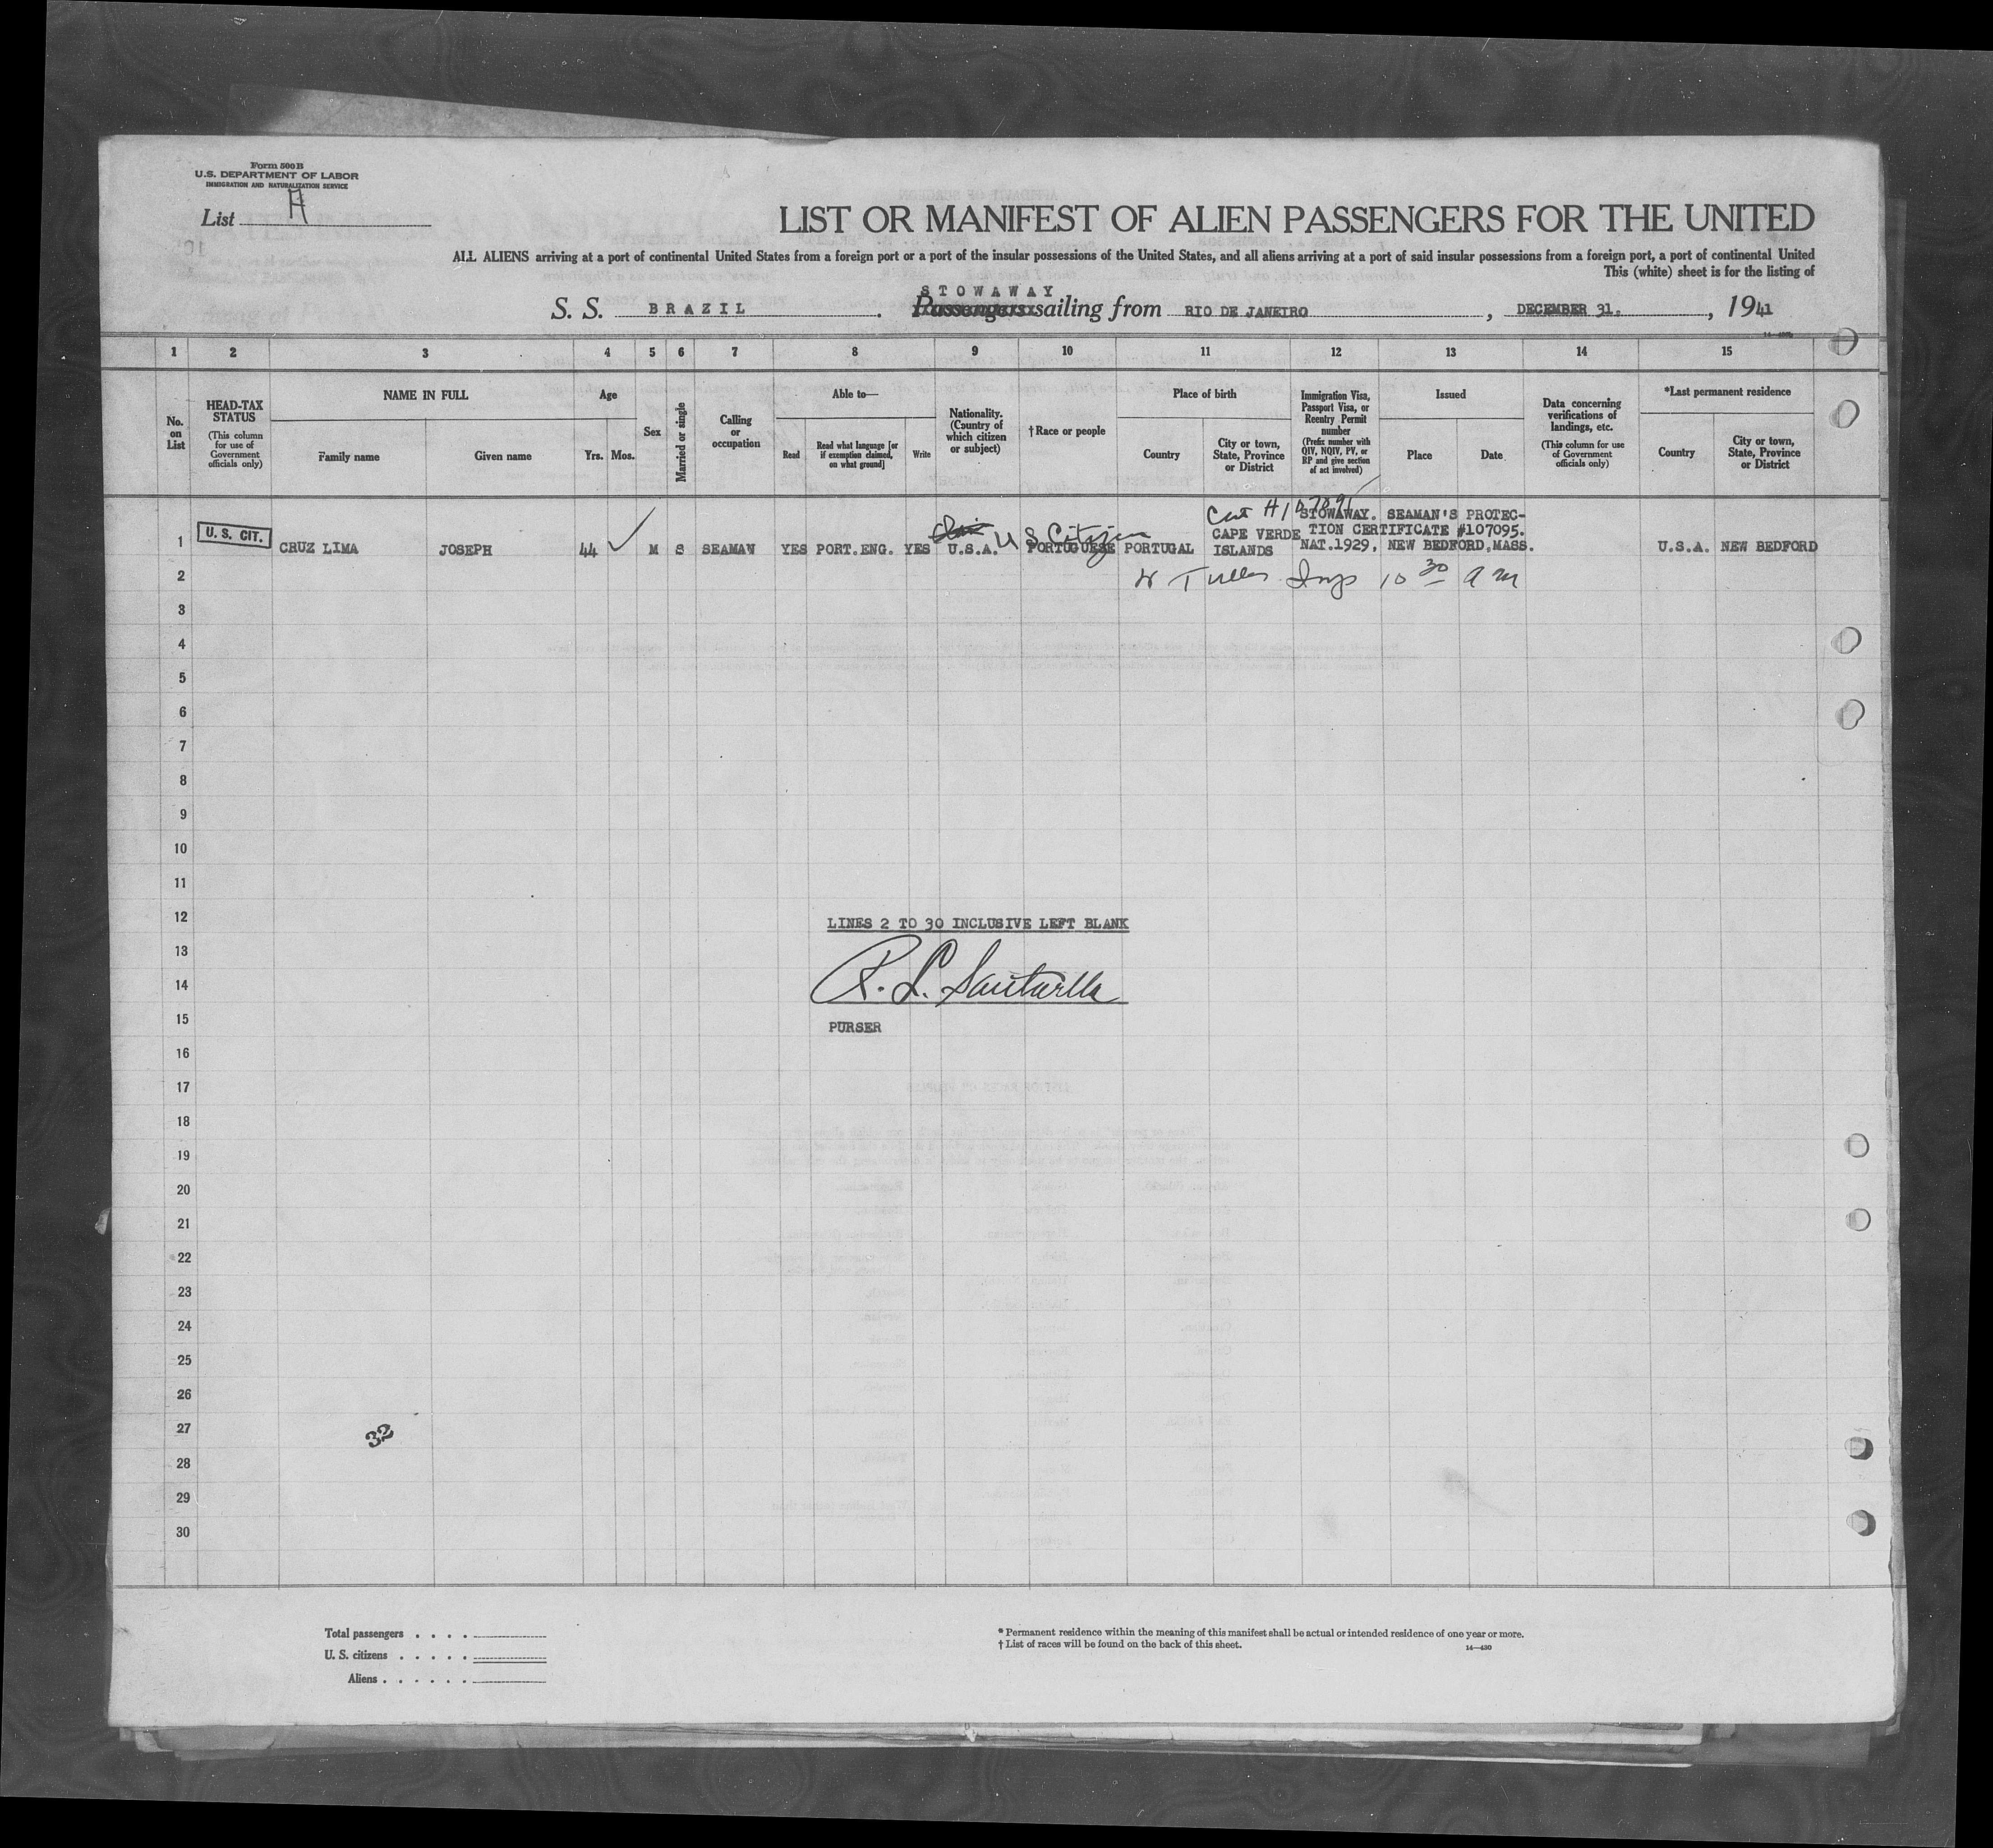 Form 500 B
U.S. DEPARTMENT OF LABOR
IMMIGRATION AND NATURALIZATION SERVICE
List A
LIST OR MANIFEST OF ALIEN PASSENGERS FOR THE UNITED
ALL ALIENS arriving at a port of continental United States from a foreign port or a port of the insular possessions of the United States, and all aliens arriving at a port of said insular possessions from a foreign port, a port of continental United
This (white) sheet is for the listing of
STOWAWAY
S. S. BRAZIL. Passengers sailing from RIO DE JANEIRO, DECEMBER 31., 1941
1 2 3 4 5 6 7 8 9 10 11 12 13 14 15
No. on List
HEAD-TAX STATUS
(This column for use of Government officials only)
NAME IN FULL
Family name Given name
Age
Yrs. Mos.
Sex
Married or single
Calling or occupation
Able to—
Read
Read what language [or if exemption claimed, on what ground]
Write
Nationality. (Country of which citizen or subject)
†Race or people
Place of birth
Country
City or town, State, Province or District
Immigration Visa, Passport Visa, or Reentry Permit number
(Prefix number with QIV, NQIV, PV, or RP and give section of act involved)
Issued
Place Date
Data concerning verifications of landings, etc.
(This column for use of Government officials only)
*Last permanent residence
Country
City or town, State, Province or District
STOWAWAY. SEAMAN'S PROTEC-
CAPE VERDE TION CERTIFICATE #107095.
U. S. CIT.
U S Citizen
1 CRUZ LIMA JOSEPH 44 M S SEAMAN YES PORT.ENG. YES U.S.A. PORTUGUESE PORTUGAL ISLANDS NAT.1929, NEW BEDFORD,MASS. U.S.A. NEW BEDFORD
2 Insp 10 30 am
3
4
5
6
7
8
9
10
11
12 LINES 2 TO 30 INCLUSIVE LEFT BLANK
13
14 R. L.
15 PURSER
16
17
18
19
20
21
22
23
24
25
26
27 32
28
29
30
Total passengers . . . .
U. S. citizens . . . . .
Aliens . . . . . .
* Permanent residence within the meaning of this manifest shall be actual or intended residence of one year or more.
† List of races will be found on the back of this sheet. 14—430